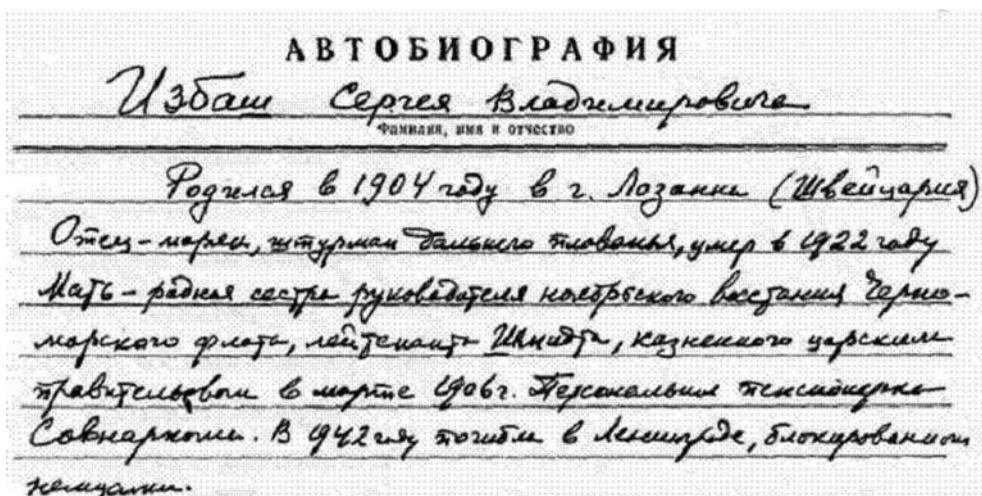 АВТОБИОГРАФИЯ
Избаш Сергея Владимировича
Фамилия, имя и отчество
Родился в 1904 году в г. Лозанни (Швейцария)
Отец - моряк, штурман дальнего плованья, умер в 1922 году
Мать - родная сестра руководителя ноябрьского восстания Черно-
морского флота, лейтенанта Шмидта, казненного царским
правительством в марте 1906 г. Персональная пенсионерка
Совнаркома. В 1942 году погибла в Ленинграде, блокированном
немцами.